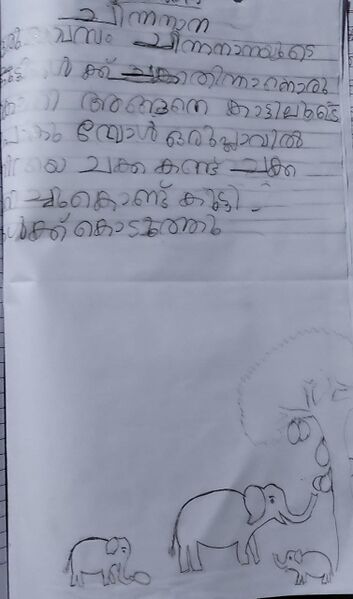 ചിന്നനാന
വസം ചിന്നനാനയുടെ
ൾ ക്ക് ചക്കതിന്നാനൊരു
അങ്ങനെ കാട്ടിലൂടെ
പോൾ ഒരുപ്ലാവിൽ
ചക്ക കണ്ട് ചക്ക
ചുകൊണ്ട് കുട്ടി
ൾക്ക് കൊടുത്തു